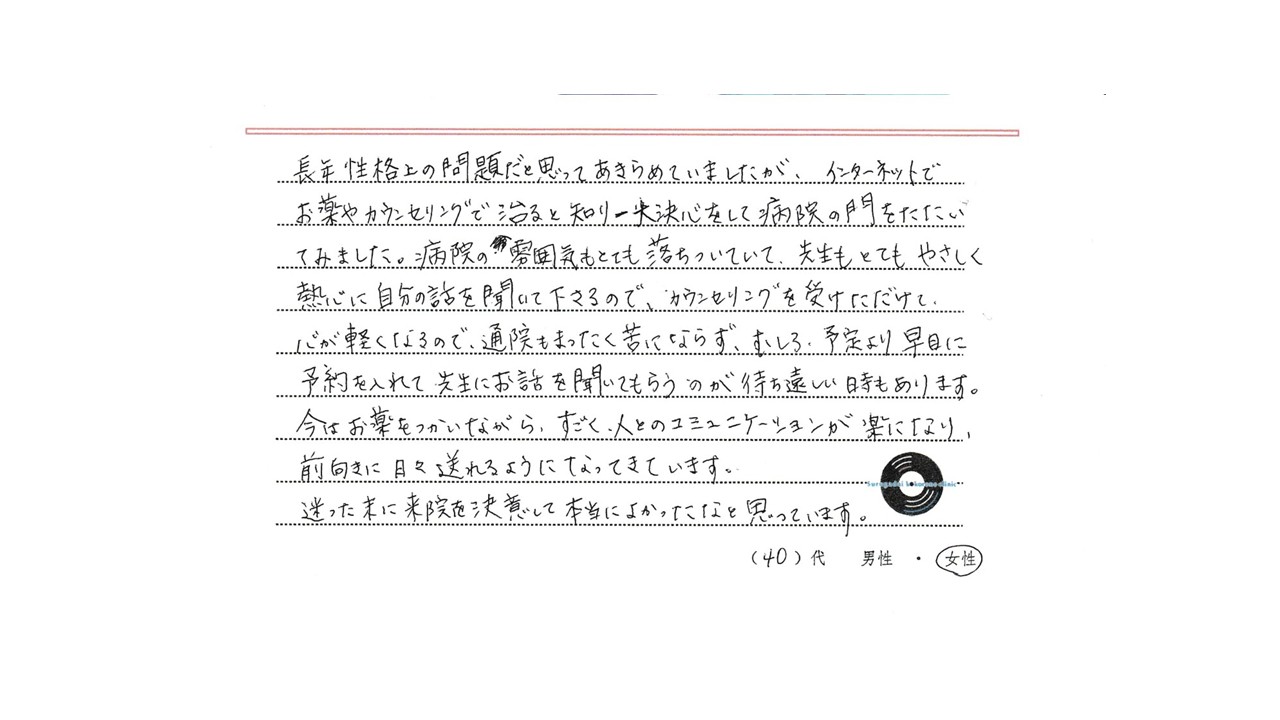 長年性格上の問題だと思ってあきらめていましたが、インターネットで
お薬やカウンセリングで治ると知り一大決心をして病院の門をたたい
てみました。病院の雰囲気もとても落ちついていて、先生もとてもやさしく
熱心に自分の話を聞いて下さるので、カウンセリングを受けただけで、
心が軽くなるので、通院もまったく苦にならず、むしろ、予定より早目に
予約を入れて先生にお話を聞いてもらうのが待ち遠しい時もあります。
今はお薬をつかいながら、すごく、人とのコミュニケーションが楽になり、
前向きに日々送れるようになってきています。
Surugadai kokorono clinic
迷った末に来院を決意して本当によかったなと思っています。
(40)代 男性 ・ 女性